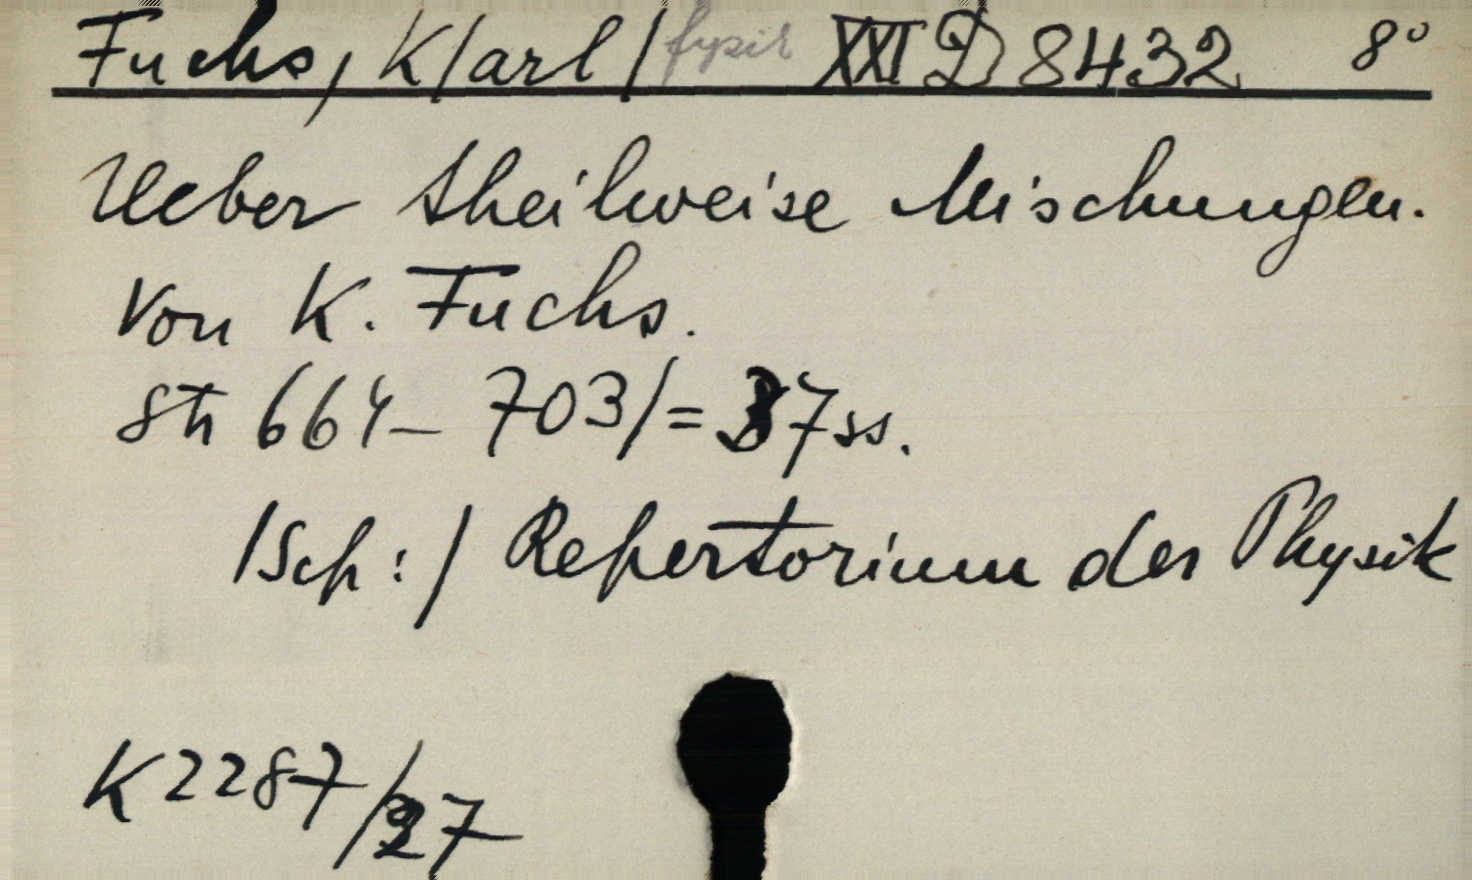 Fuchs, K/arl/ fysik XXI D 8432 8°
Ueber theilweise Mischungen.
Von K. Fuchs.
Str 664-703/= 37 ss.
/Sep:/ Repertorium der Physik
K 2287/27